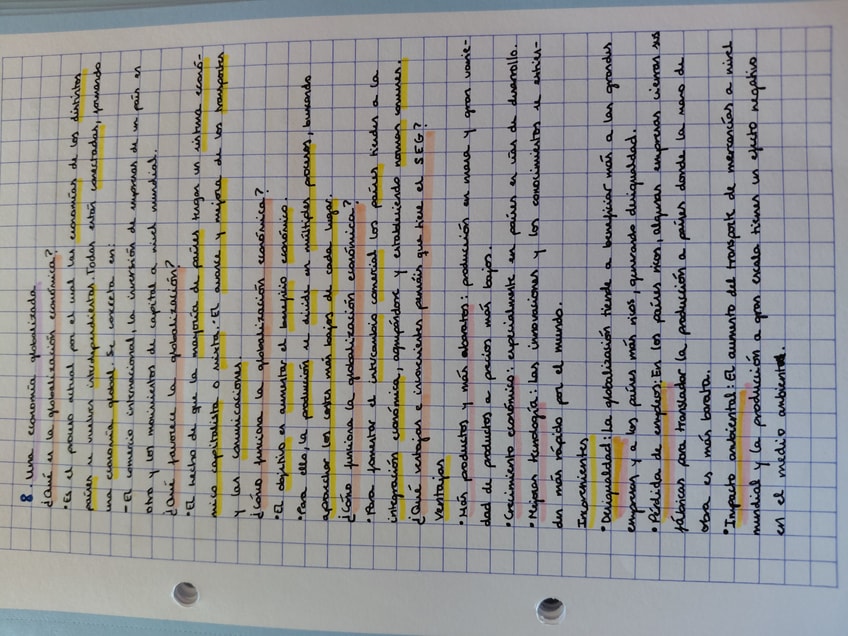 8 Una economía globalizada
¿Qué es la globalización económica?
• Es el proceso actual por el cual las economías de los distintos
países se vuelven interdependientes. Todas están conectadas, formando
una economía global. Se concreta en:
- El comercio internacional, la inversión de empresas de un país en
otro y los movimientos de capital a nivel mundial.
¿Qué favorece la globalización?
• El hecho de que la mayoría de países tengan un sistema econó-
mico capitalista o mixto. El avance y mejora de los transportes
y las comunicaciones
¿Cómo funciona la globalización económica?
• El objetivo es aumentar el beneficio económico.
• Para ello, la producción se divide en múltiples procesos, buscando
aprovechar los costes más bajos de cada lugar.
¿Cómo funciona la globalización económica?
• Para fomentar el intercambio comercial los países tienden a la
integración económica, agrupándose y estableciendo normas comunes.
¿Qué ventajas e inconvenientes pensáis que tiene el SEG?
Ventajas
• Más productos y más abaratos: producción en masa y gran varie-
dad de productos a precios más bajos.
• Crecimiento económico: especialmente en países en vías de desarrollo.
• Mejoras tecnología: Las innovaciones y los conocimientos se extien-
den más rápido por el mundo.
Inconvenientes
• Desigualdad: la globalización tiende a beneficiar más a las grandes
empresas y a los países más ricos, generando desigualdad.
• Pérdida de empleos: En los países ricos, algunas empresas cierran sus
fábricas para transladar la producción a países donde la mano de
obra es más barata.
• Impacto ambiental: El aumento del transporte de mercancías a nivel
mundial y la producción a gran escala tienen un efecto negativo
en el medio ambiente.